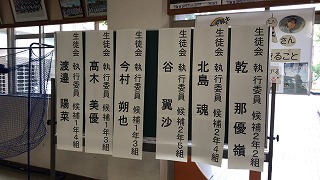 生徒会 執行委員 候補2年2組
乾 那優嶺
生徒会 執行委員 候補2年4組
北島 魂
生徒会 執行委員 候補2年5組
谷 翼沙
生徒会 執行委員 候補1年3組
今村 朔也
生徒会 執行委員 候補1年3組
高木 美優
生徒会 執行委員 候補1年4組
渡邉 陽菜
さん
ること